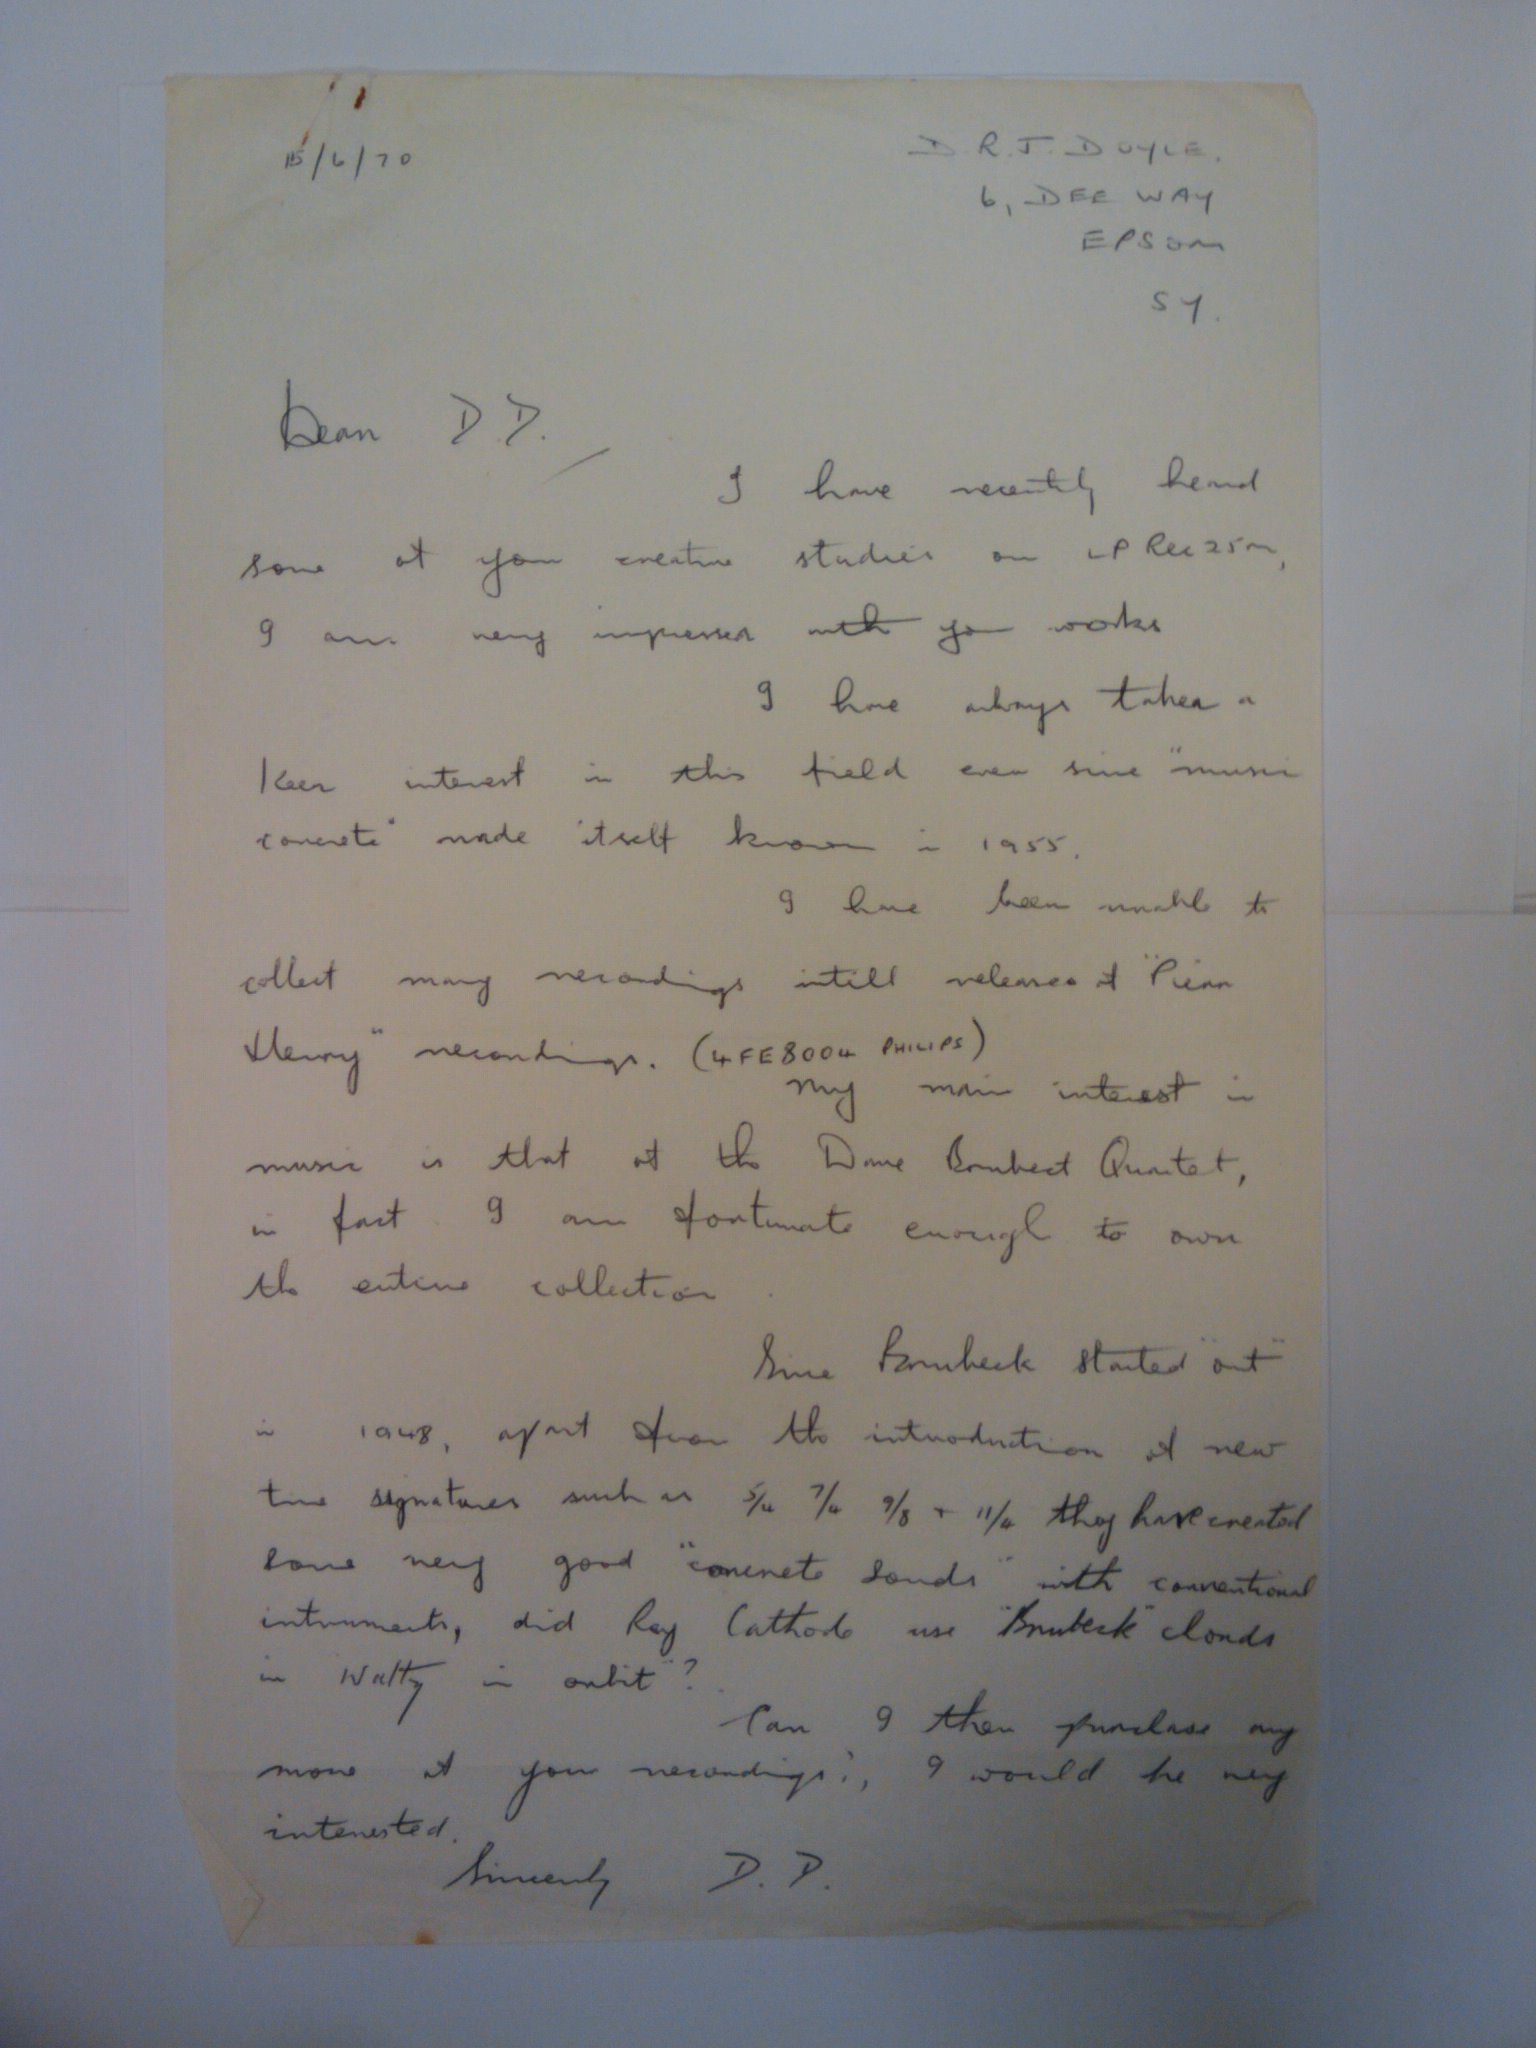 15/6/70
D R.J. DOYLE.
6, DEE WAY
EPSOM
SY.
Dear D.D.
I have recently heard
some of your creative studies on LP Rec 25m,
I am very impressed with your works
I have always taken a
keen interest in this field ever since "music
concrete" made itself known in 1955.
I have been unable to
collect many recordings intill releases of "Pierr
Henry" recordings. (4FE8004 PHILIPS)
My main interest in
music is that of the Dave Brubect Quartet,
in fact I am fortunate enough to own
the entire collection.
Since Brubeck started "out"
in 1948, apart from the introduction of new
time signatures such as 5/4 7/4 9/8 + 11/4 they have created
some very good "concrete sounds" with conventional
intruments, did Ray Cathode use "Brubeck" chords
in "Waltz in orbit"?
Can I then purchase any
more of your recordings?, I would be very
interested.
Sincerely D.D.